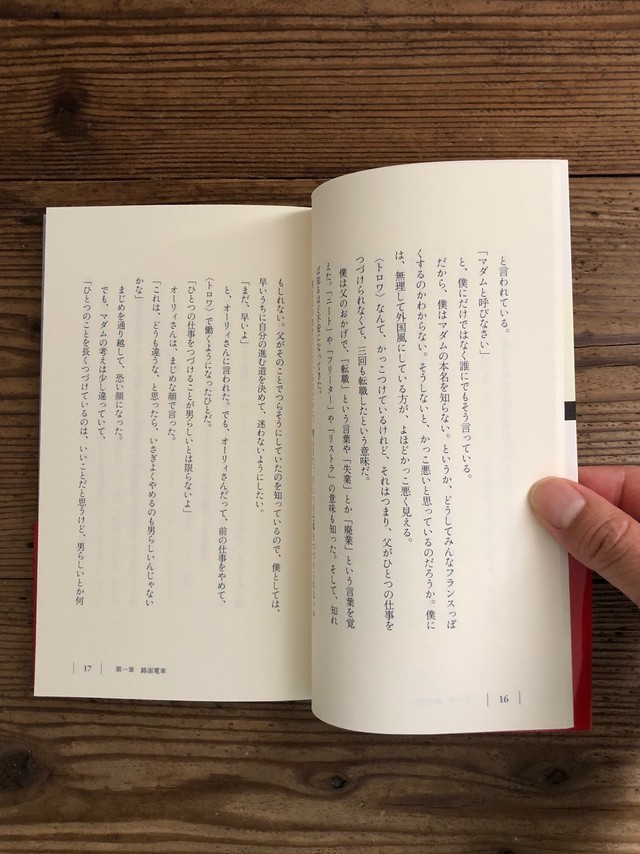 と言われている。
「マダムと呼びなさい」
と、僕にだけではなく誰にでもそう言っている。
だから、僕はマダムの本名を知らない。というか、どうしてみんなフランスっぽ
くするのかわからない。そうしないと、かっこ悪いと思っているのだろうか。僕に
は、無理して外国風にしている方が、よほどかっこ悪く見える。
〈トロワ〉なんて、かっこつけているけれど、それはつまり、父がひとつの仕事を
つづけられなくて、三回も転職したという意味だ。
僕は父のおかげで、「転職」という言葉や「失業」とか「廃業」という言葉を覚
えた。「ニート」や「フリーター」や「リストラ」の意味も知った。そして、知れ
ば知るほど不安になってきた。
16
もしれない。父がそのことでつらそうにしていたのを知っているので、僕としては、
早いうちに自分の進む道を決めて、迷わないようにしたい。
「まだ、早いよ」
と、オーリィさんに言われた。でも、オーリィさんだって、前の仕事をやめて、
〈トロワ〉で働くようになったひとだ。
「ひとつの仕事をつづけることが男らしいとは限らないよ」
オーリィさんは、まじめな顔で言った。
「これは、どうも違うな、と思ったら、いさぎよくやめるのも男らしいんじゃない
かな」
まじめを通り越して、恐い顔になった。
でも、マダムの考えは少し違っていて、
「ひとつのことを長くつづけているのは、いいことだと思うけど、男らしいとか何
17 第一章 路面電車